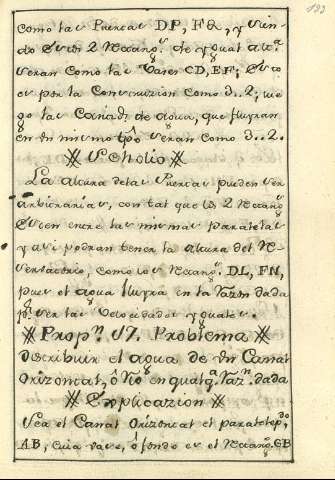 como las Puertas DP, F&, y sien-
do estos 2 Rectang.s de ygual alt.a
seran como las bases CD, EF; esto
es por la Construzion como 3..2; lue-
go las Cantid.s de agua, que fluyran
en un mismo tpô seran como 3..2.
Scholio
La altura de las Puertas pueden ser
arbitrarias, con tal que los 2 Rectang.s
esten entre las mismas paralelas
y asi podran tener la altura del Re-
ceptaculo, como los Rectang.s DL, FN,
pues el agua fluyrá en la razon dada
p.r ser las Velocidades yguales.
Prop.n VI. Problema
Distribuir el agua de un Canal
Orizontal, ô Rio en qualq.a Raz.n dada
Explicazion
Sea el Canal Orizontal el paralelep.do
AB, cuia vase, ô fondo es el Rectang.o CB